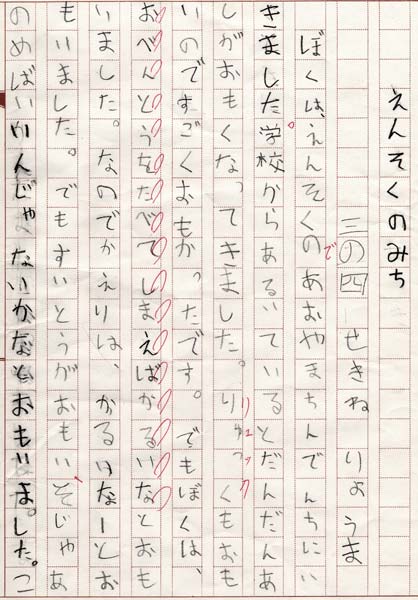 えんそくのみち
三の四 せきね りょうま
ぼくは、えんそくのあおやまちんでんちにい
きました。学校からあるいているとだんだんあ
しがおもくなってきました。りゅっくもおも
いのですごくおもかったです。でもぼくは、
おべんとうをたべてしまえばかるいなとおも
いました。なのでかえりは、かるいなーとお
もいました。でもすいとうがおもいそじゃあ
のめばいかんじゃないかなとおもいました。つ
で
リュック